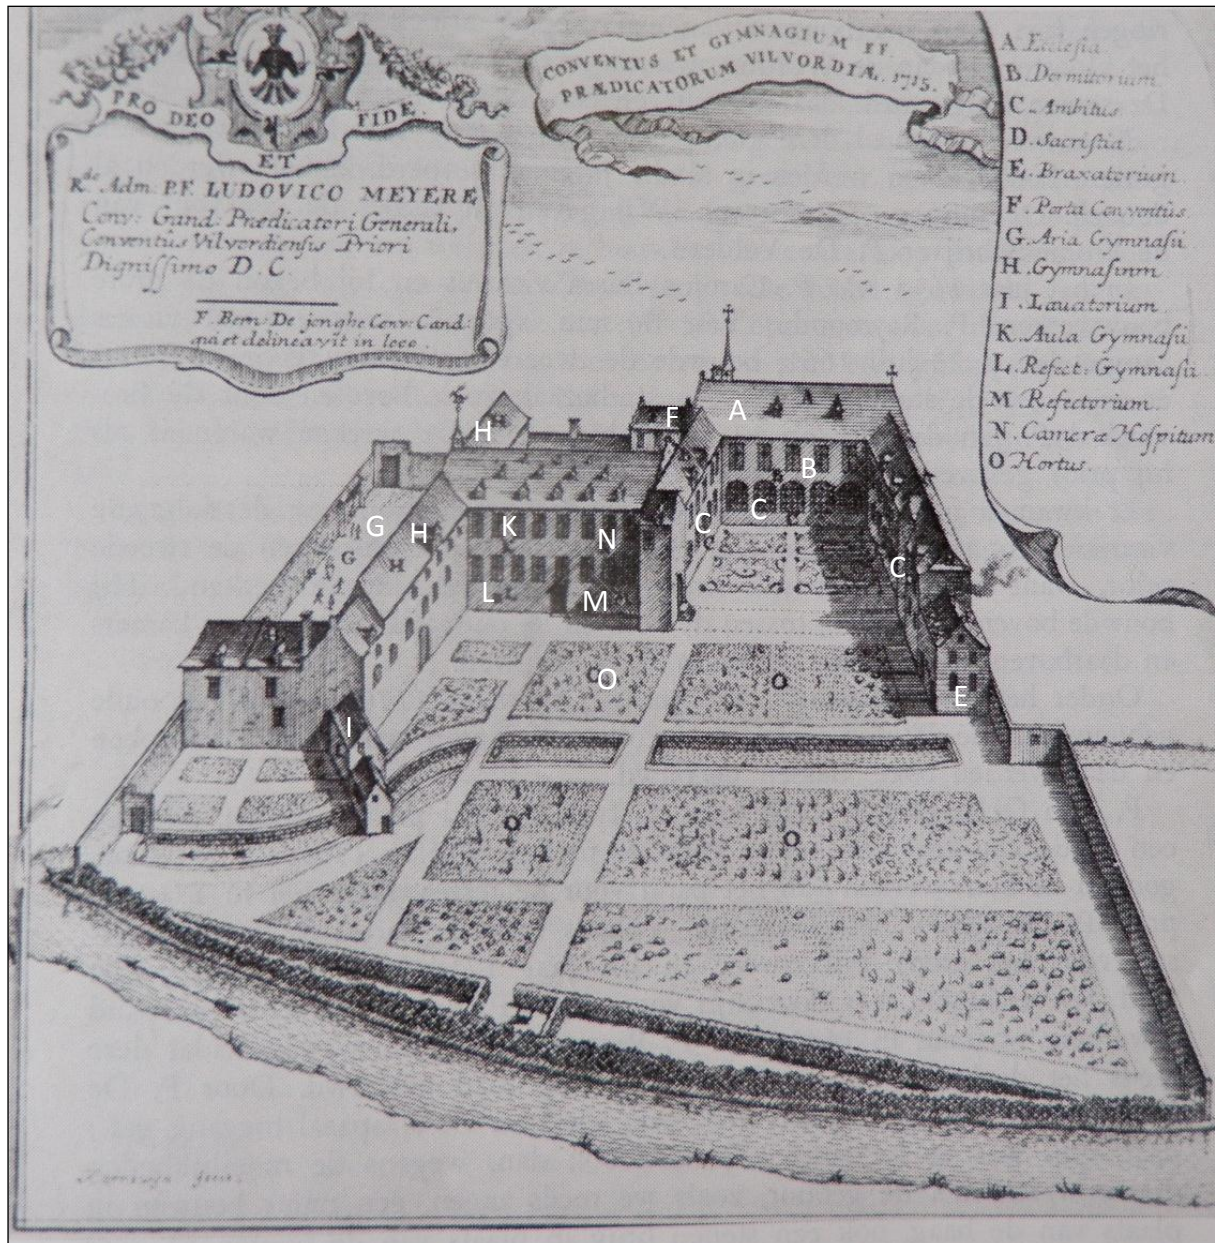 PRO DEO ET FIDE.
R.de Adm: P.F. LUDOVICO MEYERE
Conv: Gand: Prædicatori Generali,
Conventûs Vilvordiensis Priori
Dignissimo D. C.
F. Bern: De jonghe Conv: Gand:
et delineavit in loco.
CONVENTUS ET GYMNAGIUM FF.
PRÆDICATORUM VILVORDIÆ. 1715.
A. Ecclesia.
B. Dormitorium.
C. Ambitus.
D. Sacristia.
E. Braxatorium.
F. Porta Conventûs.
G. Aria Gymnasii
H. Gymnasinm
I. Lauatorium.
K. Aula Gymnasii
L. Refect: Gymnasii
M. Refectorium.
N. Cameræ Hospitum
O Hortus.
A
A
F
H
H
B
C
C
G
H
K
N
G
H
C
L
M
O
O
E
I
O
O
fecit.